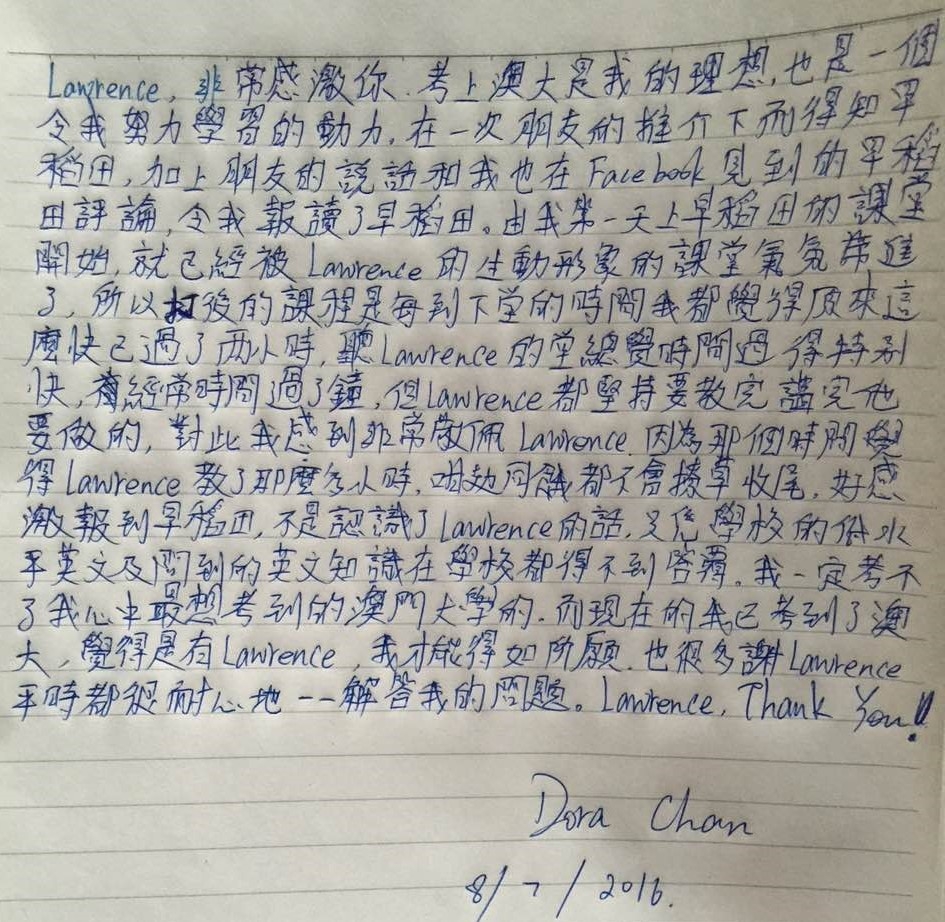 Lawrence, 非常感激你.考上澳大是我的理想,也是一個
令我努力學習的動力.在一次朋友的推介下而得知早
稻田,加上朋友的説話和我也在Facebook見到的早稻
田評論,令我報讀了早稻田。由我第一天上早稻田的課堂
開始,就已經被Lawrence的生動形象的課堂氣氛帶進
了,所以打後的課程是每到下堂的時間我都覺得原來這
麼快已過了兩小時,聽Lawrence的堂總覺時間過得特別
快,有經常時間過了鐘,但Lawrence都堅持要教完講完他
要做的,對此我感到非常敬佩Lawrence.因為那個時間覺
得Lawrence教了那麼多小時,都不會撩草收尾.好感
激報到早稻田,不是認識了Lawrence的話,只係學校的低水
平英文及問到的英文知識在學校都得不到答覆.我一定考不
了我心中最想考到的澳門大學的.而現在的我已考到了澳
大,覺得是有Lawrence,我才能得如所願.也很多謝Lawrence
平時都很耐心地一一解答我的問題。Lawrence, Thank You!!
Dora Chan
8/7/2016.